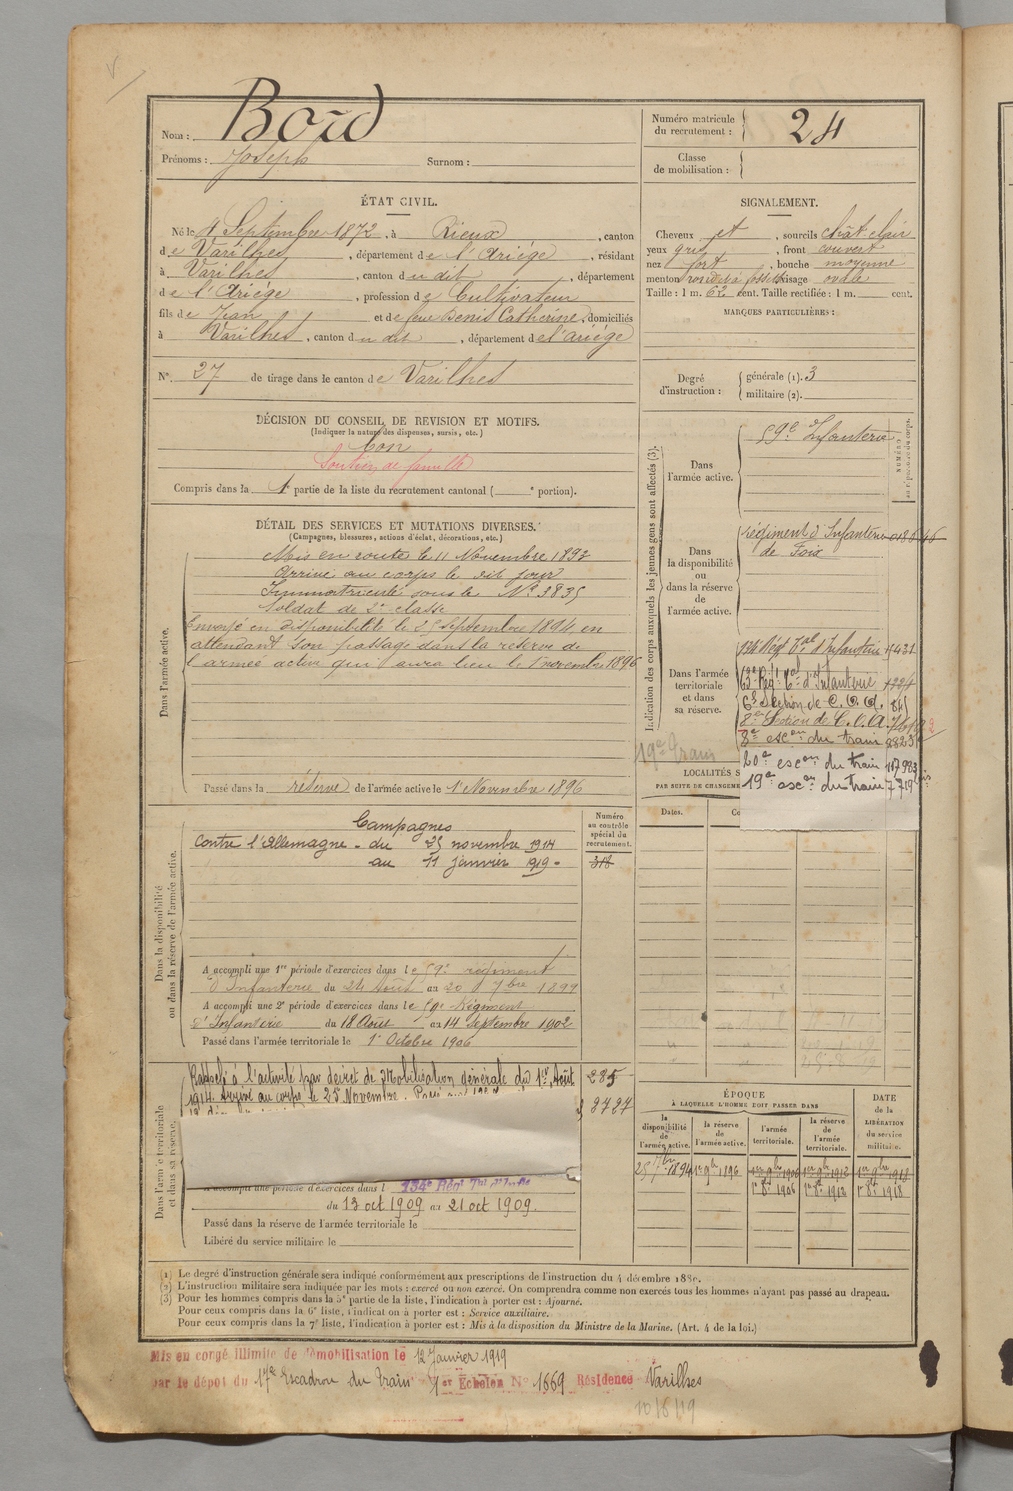 Nom : Bord
Prénoms : Joseph Surnom :
Numéro matricule du recrutement : 24
Classe de mobilisation :
ÉTAT CIVIL.
Né le 4 Septembre 1872, à Rieux, canton
de Varilhes, département de l'Ariége, résidant
à Varilhes, canton du dit, département
de l'Ariége, profession de Cultivateur
fils de Jean et de feue Denis Catherine, domiciliés
à Varilhes, canton du dit, département de l'ariége
N°. 27 de tirage dans le canton de Varilhes
SIGNALEMENT.
Cheveux et, sourcils chât clair
yeux gris, front couvert
nez fort, bouche moyenne
menton rond à fossette visage ovale
Taille : 1 m. 62 cent. Taille rectifiée : 1 m. cent.
MARQUES PARTICULIÈRES :
Degré d'instruction : générale (1). 3
militaire (2).
DÉCISION DU CONSEIL DE REVISION ET MOTIFS.
(Indiquer la nature des dispenses, sursis, etc.)
Bon
Soutien de famille
Compris dans la 1e partie de la liste du recrutement cantonal ( e portion).
DÉTAIL DES SERVICES ET MUTATIONS DIVERSES.
(Campagnes, blessures, actions d'éclat, décorations, etc.)
Dans l'armée active.
Mis en route le 11 Novembre 1893
Arrivé au corps le dit jour
Immatriculé sous le N° 3835
Soldat de 2e classe
Envoyé en disponibilité le 25 Septembre 1894, en
attendant son passage dans la réserve de
l'armée active qui aura lieu le 1 novembre 1896
Passé dans la réserve de l'armée active le 1er Novembre 1896
Indication des corps auxquels les jeunes gens sont affectés (3).
NUMÉRO
au répertoire du corps.
Dans l'armée active.
59e Infanterie
Dans la disponibilité ou dans la réserve de l'armée active.
régiment d'Infanterie
de Foix
Dans l'armée territoriale et dans sa réserve.
134 Régt Tal d'Infanterie 15431
63e Régt Tal d'Infanterie
6e Section de C.O.A.
8e Section de C.O.A.
8e escon du train
20e escon du train
19e escon du train
19e Train
LOCALITÉS S
PAR SUITE DE CHANGEME
Dates.
Dans la disponibilité ou dans la réserve de l'armée active.
Numéro au contrôle spécial du recrutement.
318
Campagnes
Contre l'Allemagne - du 25 novembre 1914
au 11 janvier 1919 -
A accompli une 1re période d'exercices dans le 59e régiment
d'Infanterie du 24 Août au 20 7bre 1899
A accompli une 2e période d'exercices dans le 59e Régiment
d'Infanterie du 18 Août au 14 septembre 1902
Passé dans l'armée territoriale le 1er Octobre 1906
Dans l'armée territoriale et dans sa réserve.
Rappelé à l'activité par décret de Mobilisation générale du 1er Août
1914. Arrivé au corps le 25 Novembre.
285
2727
A accompli une période d'exercices dans l 134e Régt Tal d'Infie
du 13 oct 1909 au 21 oct 1909.
Passé dans la réserve de l'armée territoriale le
Libéré du service militaire le
ÉPOQUE
À LAQUELLE L'HOMME DOIT PASSER DANS
la disponibilité de l'armée active.
la réserve de l'armée active.
l'armée territoriale.
la réserve de l'armée territoriale.
DATE de la LIBÉRATION du service militaire.
25 7bre 1894 1er 9bre 1896 1er 9bre 1906 1er 9bre 1912 1er 9bre 1918
1er 8bre 1906 1er 8bre 1912 1er 8bre 1918
(1) Le degré d'instruction générale sera indiqué conformément aux prescriptions de l'instruction du 4 décembre 1889.
(2) L'instruction militaire sera indiquée par les mots : exercé ou non exercé. On comprendra comme non exercés tous les hommes n'ayant pas passé au drapeau.
(3) Pour les hommes compris dans la 5e partie de la liste, l'indication à porter est : Ajourné.
Pour ceux compris dans la 6e liste, l'indication à porter est : Service auxiliaire.
Pour ceux compris dans la 7e liste, l'indication à porter est : Mis à la disposition du Ministre de la Marine. (Art. 4 de la loi.)
Mis en congé illimité de démobilisation le 12 Janvier 1919
par le dépôt du 17e Escadron du Train 1er Echelon N° 1669 Résidence Varilhes
10/6/19